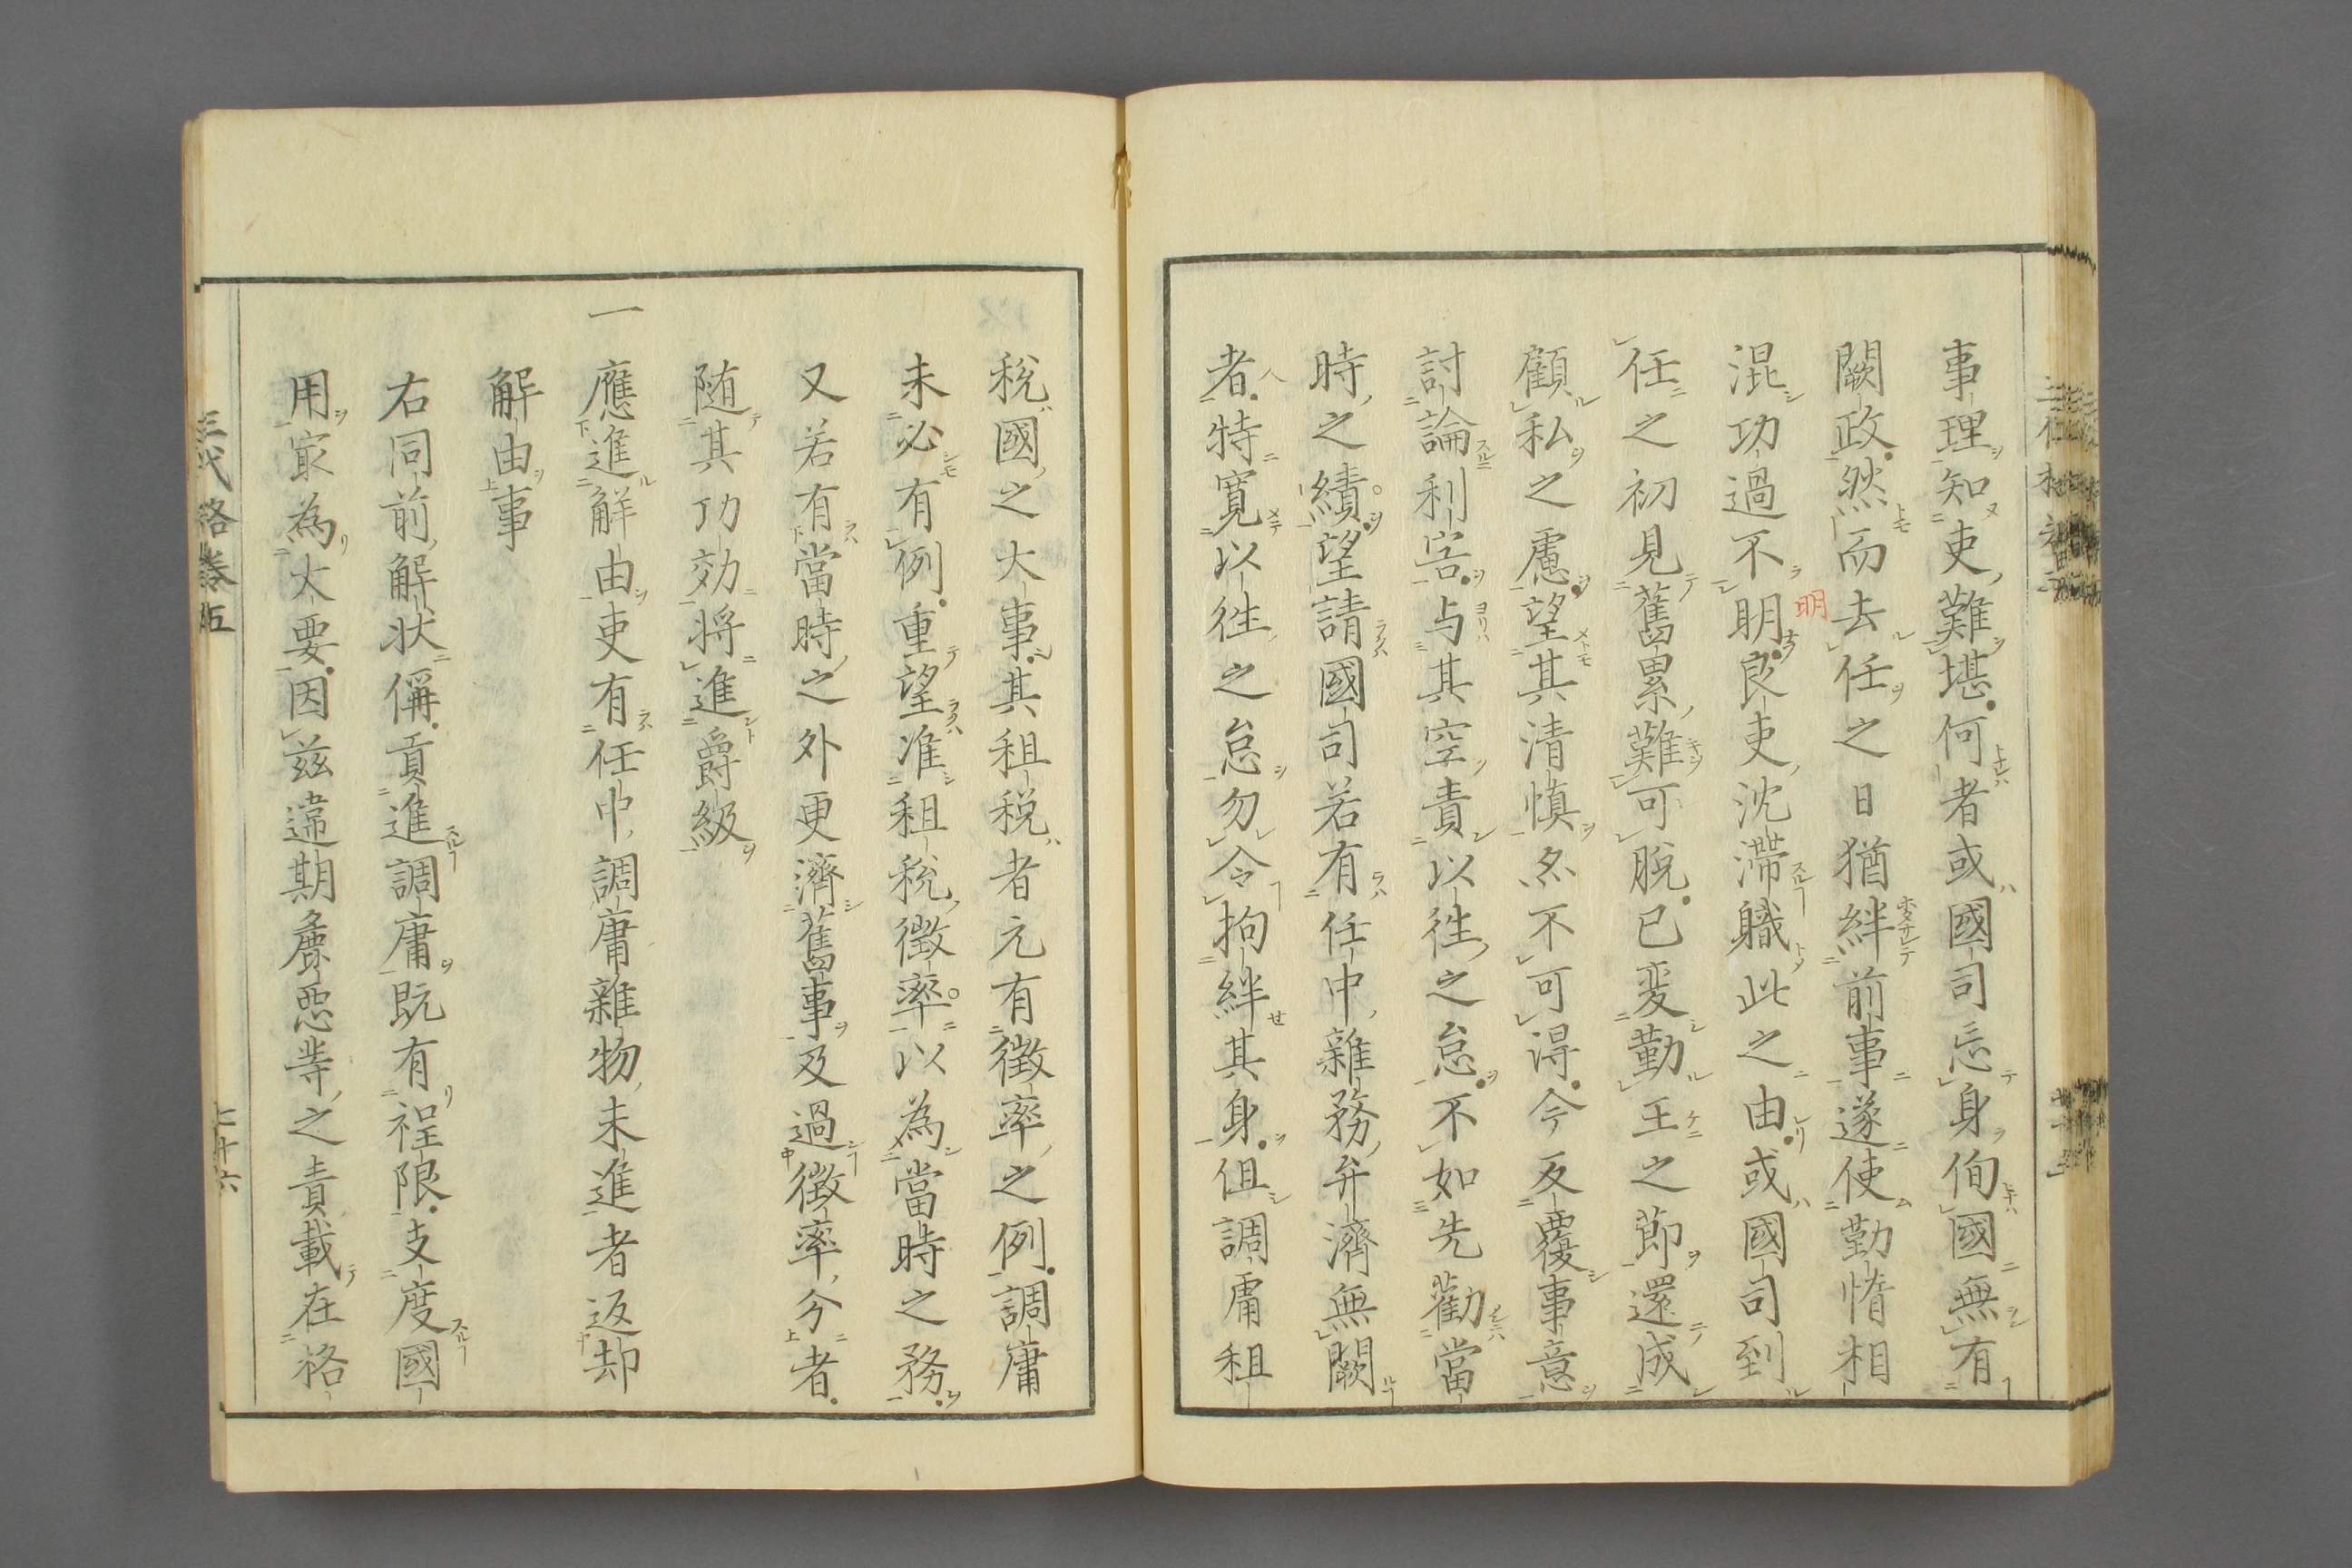 事理知吏難堪何者或國司忘身侚國無有
闕政然而去任之日猶絆前事遂使勤惰相
混功過不明良吏沈滯職此之由或國司到
明
任之初見舊累難可脫已変勤王之節還成
顧私之慮望其清慎烝不可得今反覆事意
討論利害与其空責以徃之怠不如先勸當
時之績望請國司若有任中雜務弁濟無闕
者特寛以徃之怠勿令拘絆其身但調庸租
税國之大事其租税者元有徴率之例調庸
未必有例重望准租税徴率以為當時之務
又若有當時之外更濟舊事及過徴率分者
随其功効将進爵級
一應進解由吏有任中調庸雜物未進者返却
解由事
右同前解状偁貢進調庸既有程限支度國
用㝡為大要因茲違期麁惡等之責載在格
三代格巻五
二十六